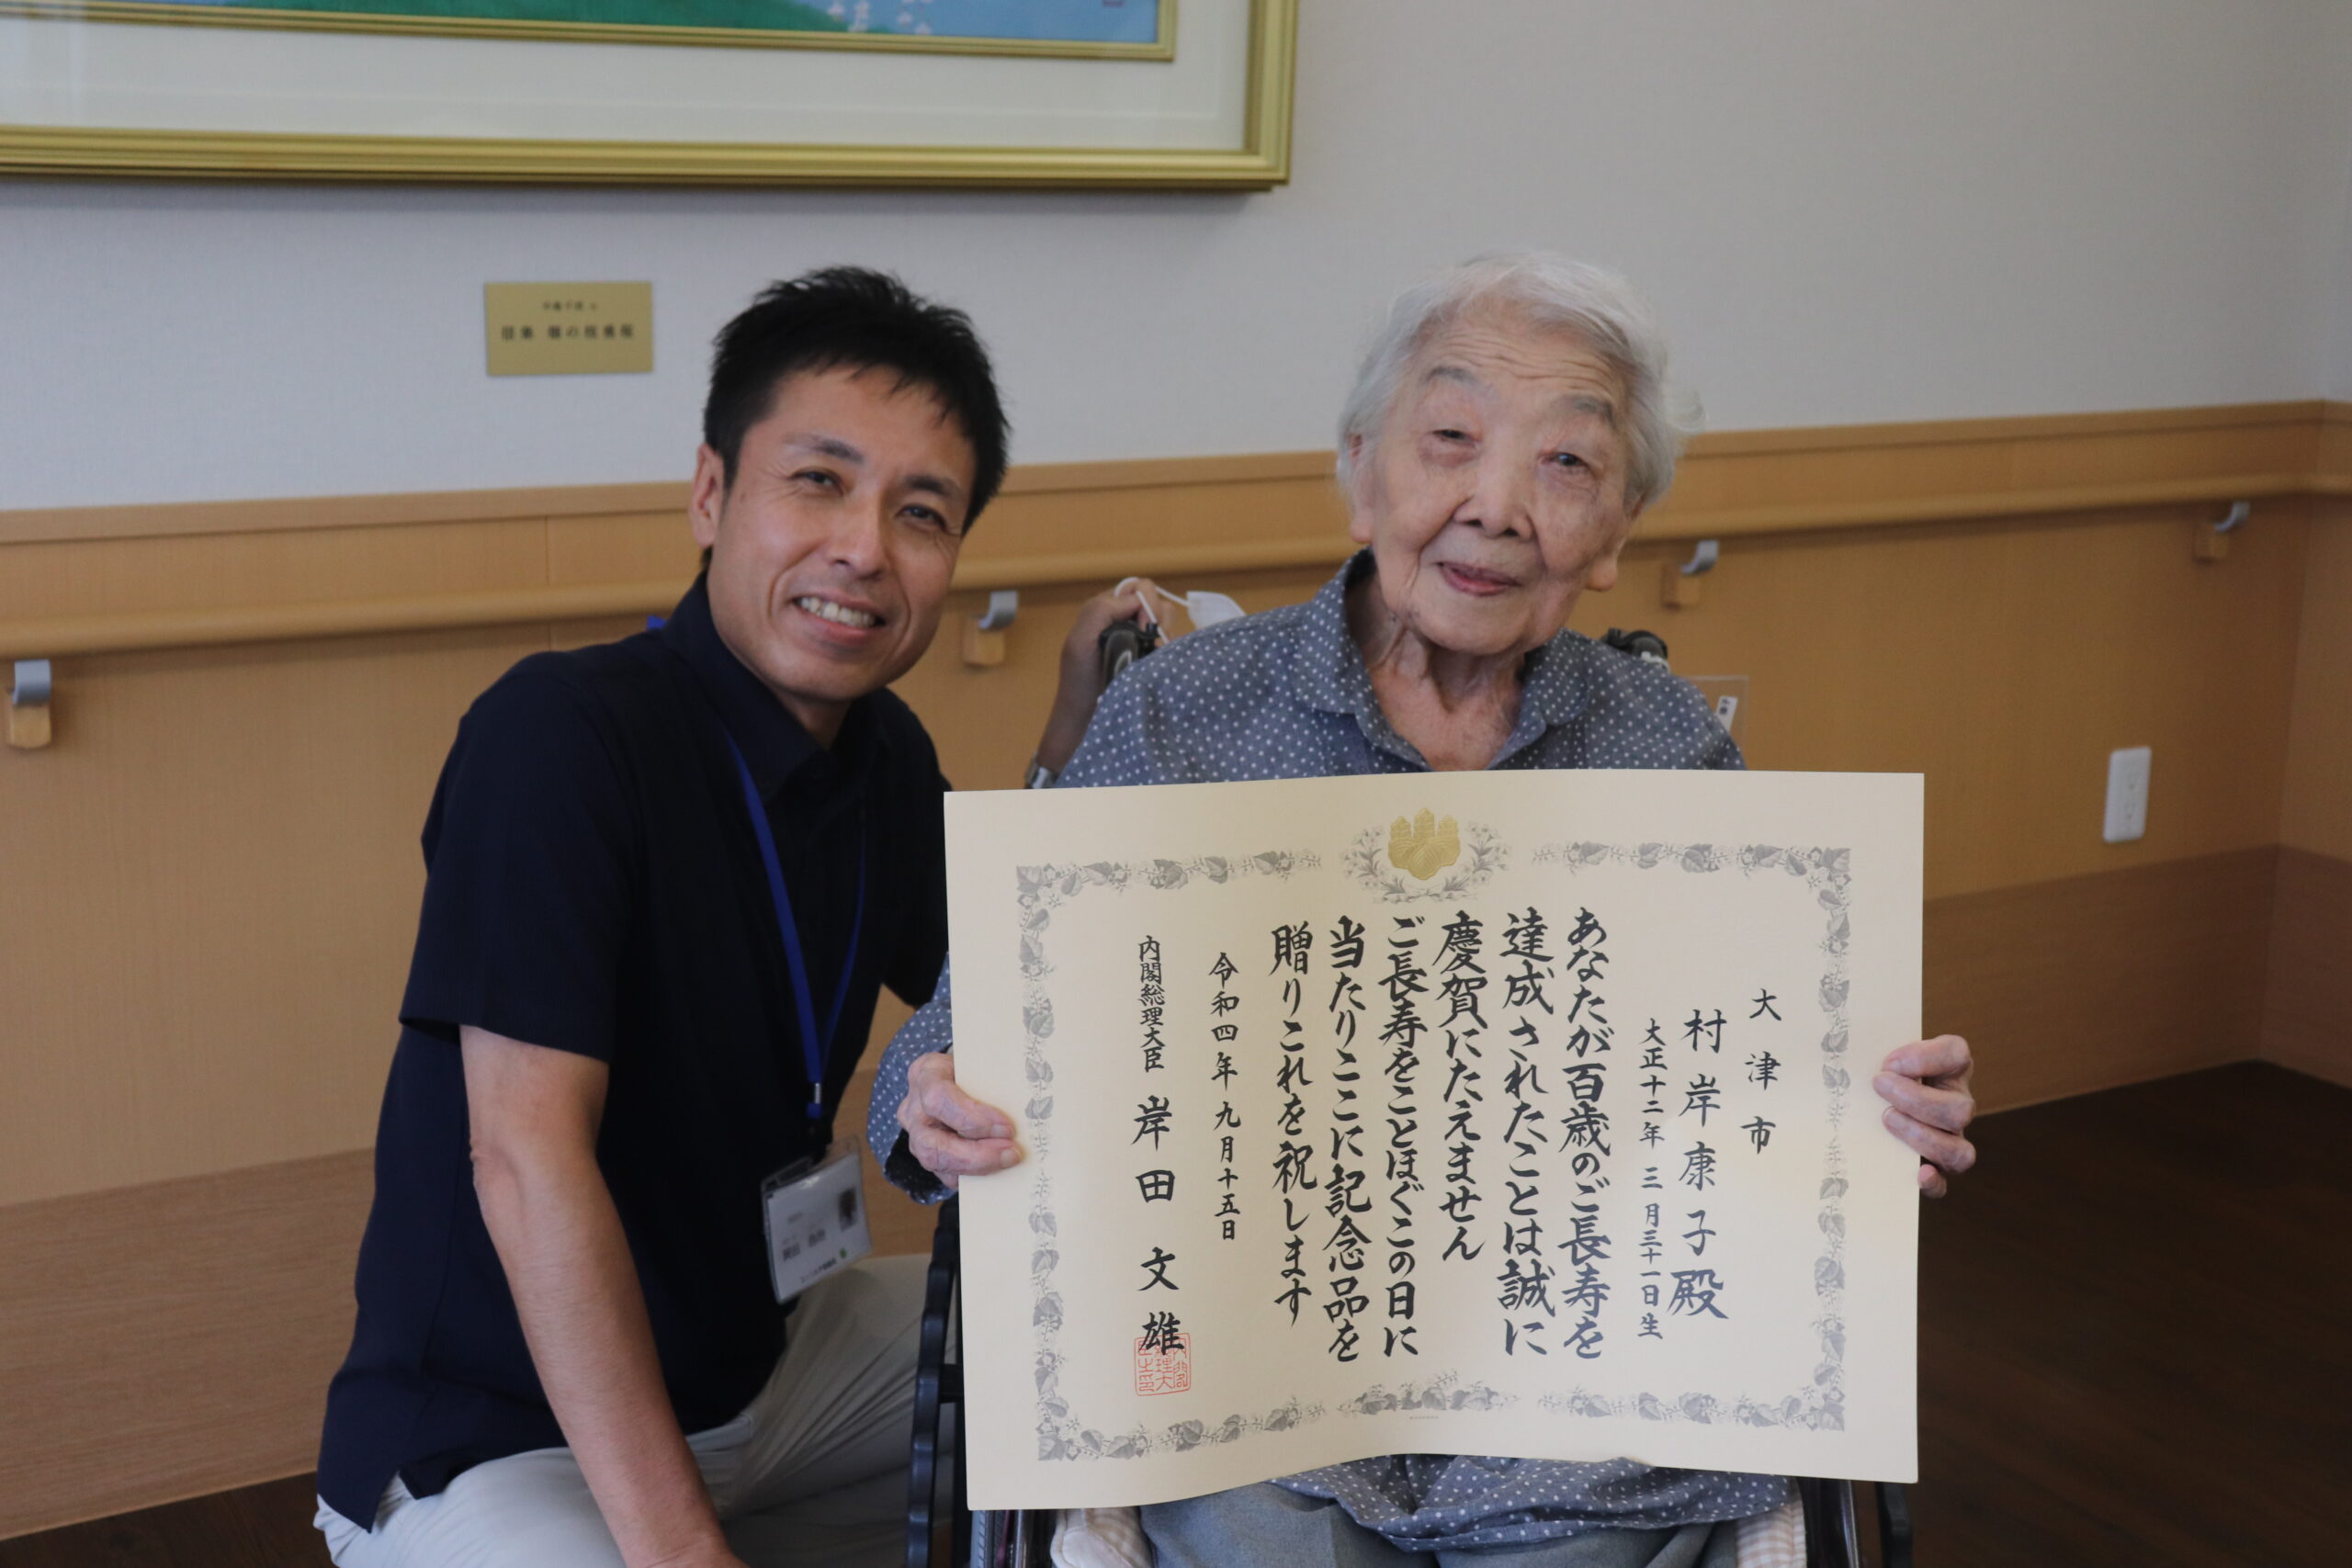 大津市
村岸康子殿
大正十二年三月三十一日生
あなたが百歳のご長寿を
達成されたことは誠に
慶賀にたえません
ご長寿をことほぐこの日に
当たりここに記念品を
贈りこれを祝します
令和四年九月十五日
内閣総理大臣 岸田文雄